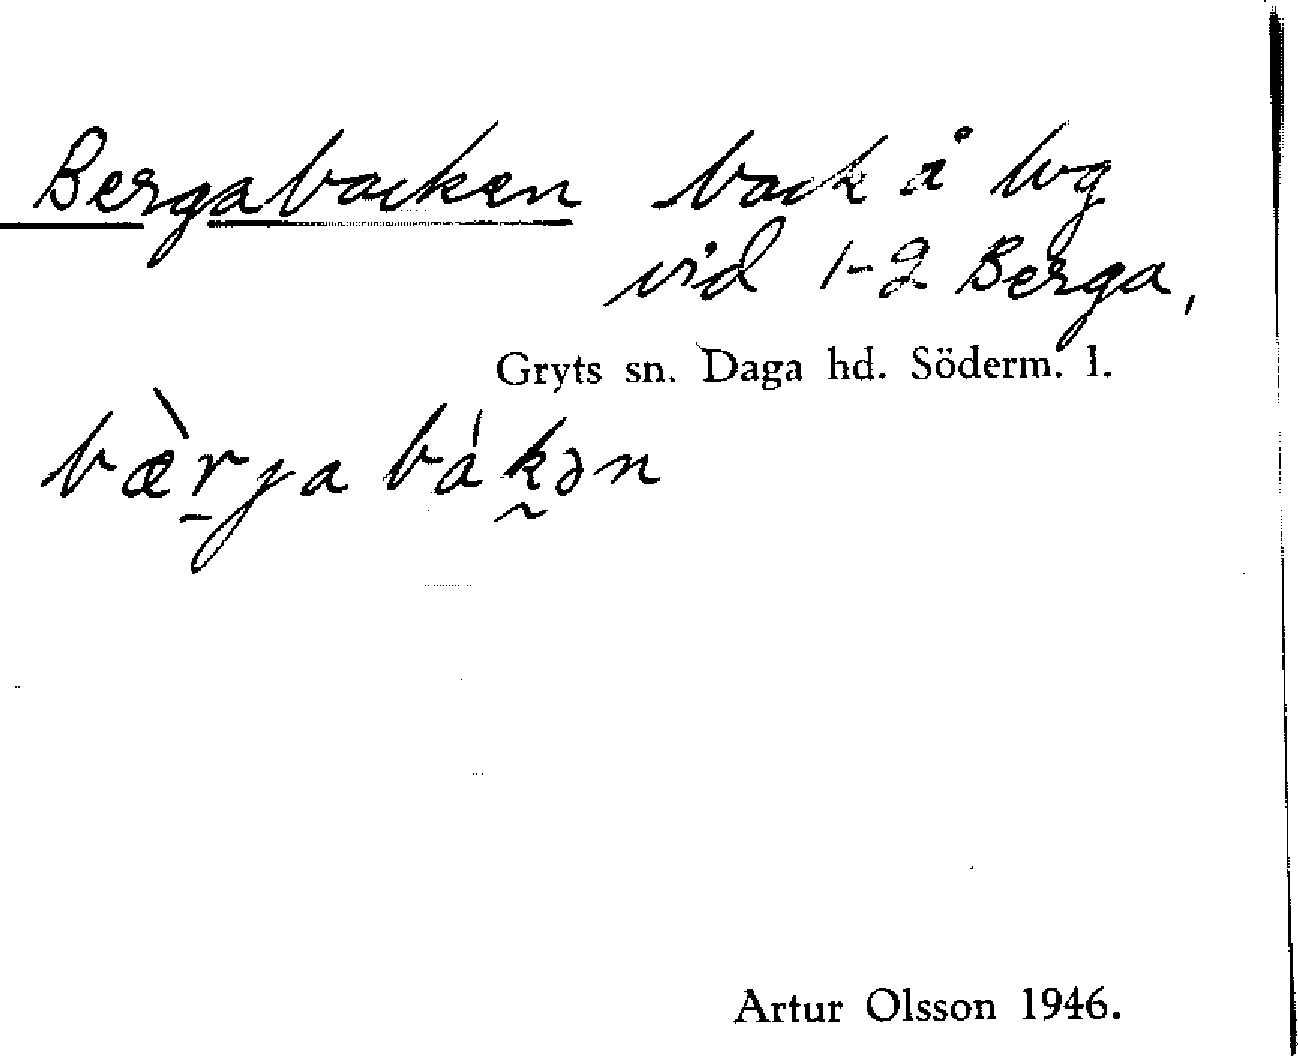 Bergabacken back å lvg
vid 1-2 Berga,
Gryts sn. Daga hd. Söderm. l.
bæ̀r̠ja bák̰ən
Artur Olsson 1946.